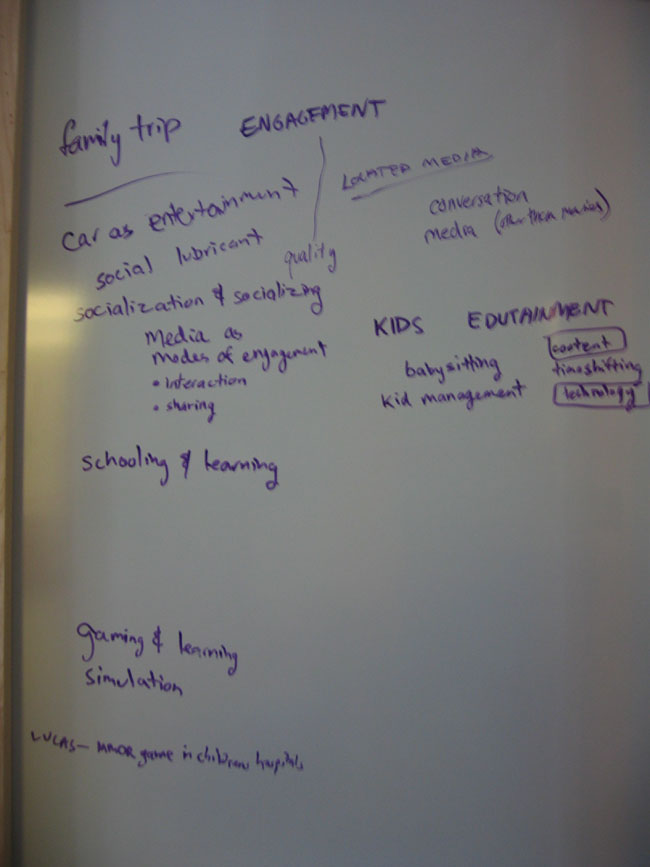 family trip
ENGAGEMENT
LOCATED MEDIA
car as entertainment
conversation
social lubricant
media (other than movies)
quality
socialization & socializing
Media as
modes of engagement
• interaction
• sharing
KIDS EDUTAINMENT
babysitting
kid management
content
timeshifting
technology
schooling & learning
gaming & learning
simulation
LUCAS - game in childrens hospitals